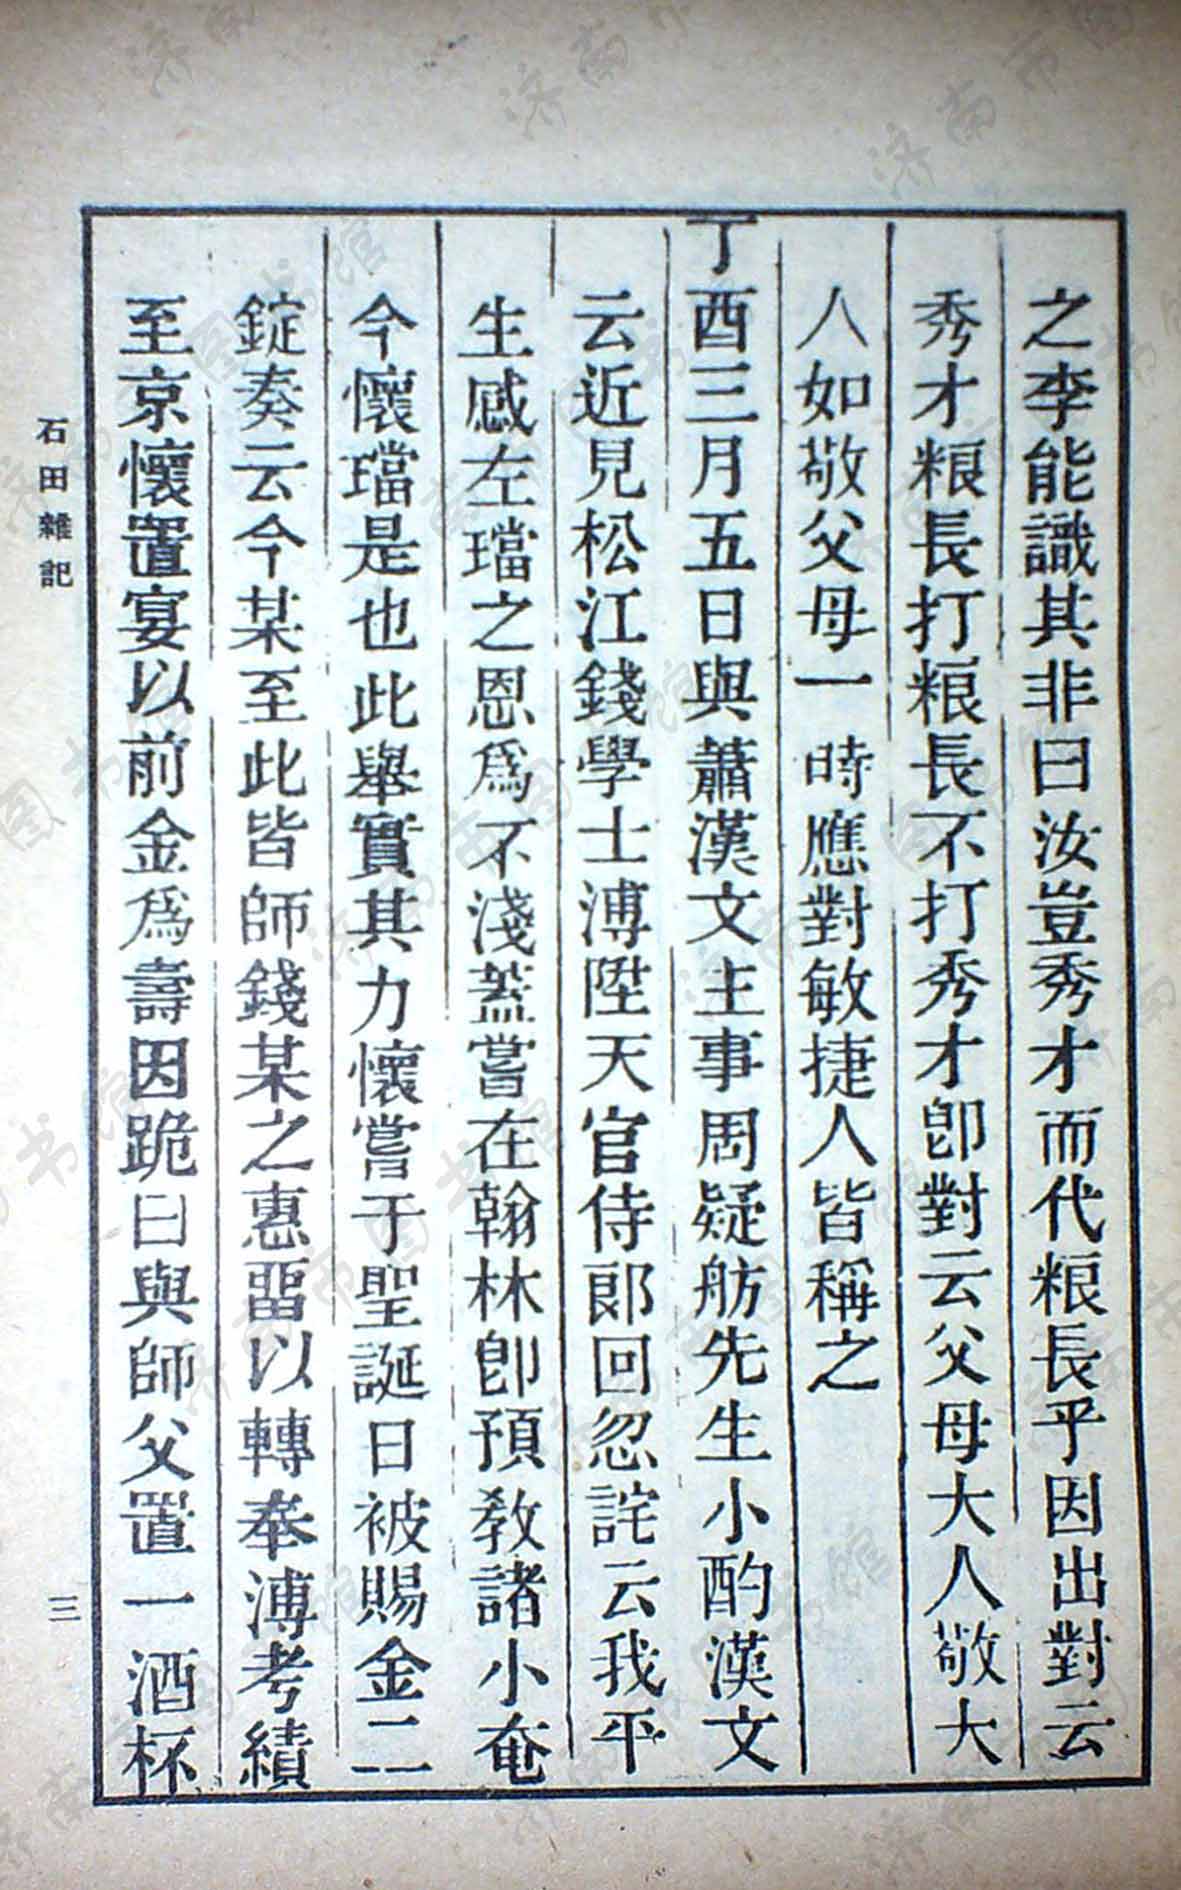 之李能識其非曰汝豈秀才而代粮長乎因出對云
秀才粮長打粮長不打秀才卽對云父母大人敬大
人如敬父母一時應對敏捷人皆稱之
丁酉三月五日與蕭漢文主事周疑舫先生小酌漢文
云近見松江錢學士溥陞天官侍郎回忽詫云我平
生感左璫之恩爲不淺蓋嘗在翰林卽預教諸小奄
今懷璫是也此舉實其力懷嘗于聖誕日被賜金二
錠奏云今某至此皆師錢某之惠畱以轉奉溥考績
至京懷置宴以前金爲壽因跪曰與師父置一酒杯
石田雜記
三
济南市图书馆